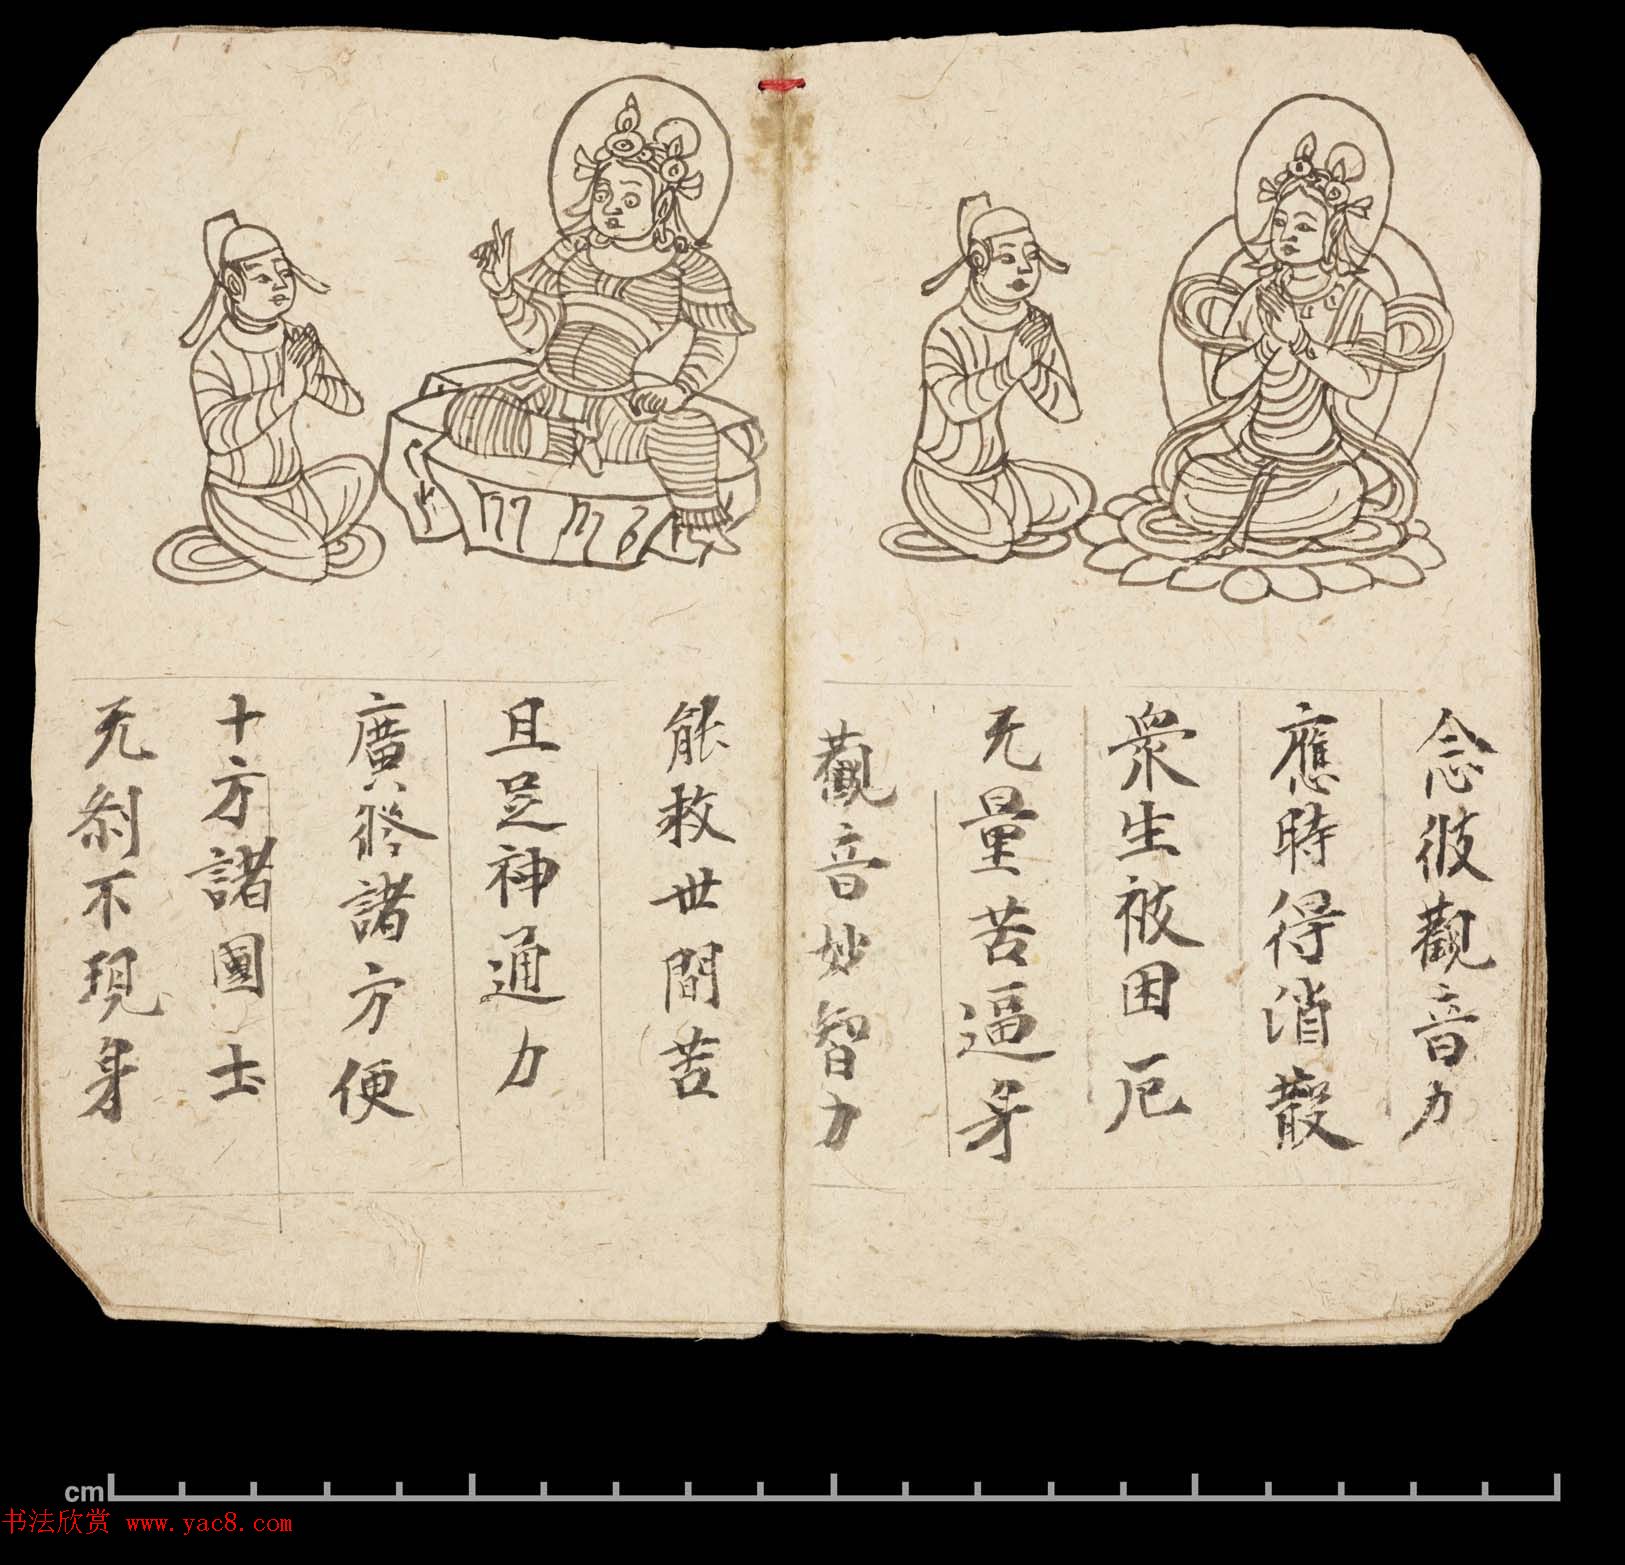 念彼觀音力
應時得消散
衆生被困厄
无量苦逼身
觀音妙智力
能救世間苦
且足神通力
廣修諸方便
十方諸國土
无刹不現身
cm
书法欣赏 www.yac8.com